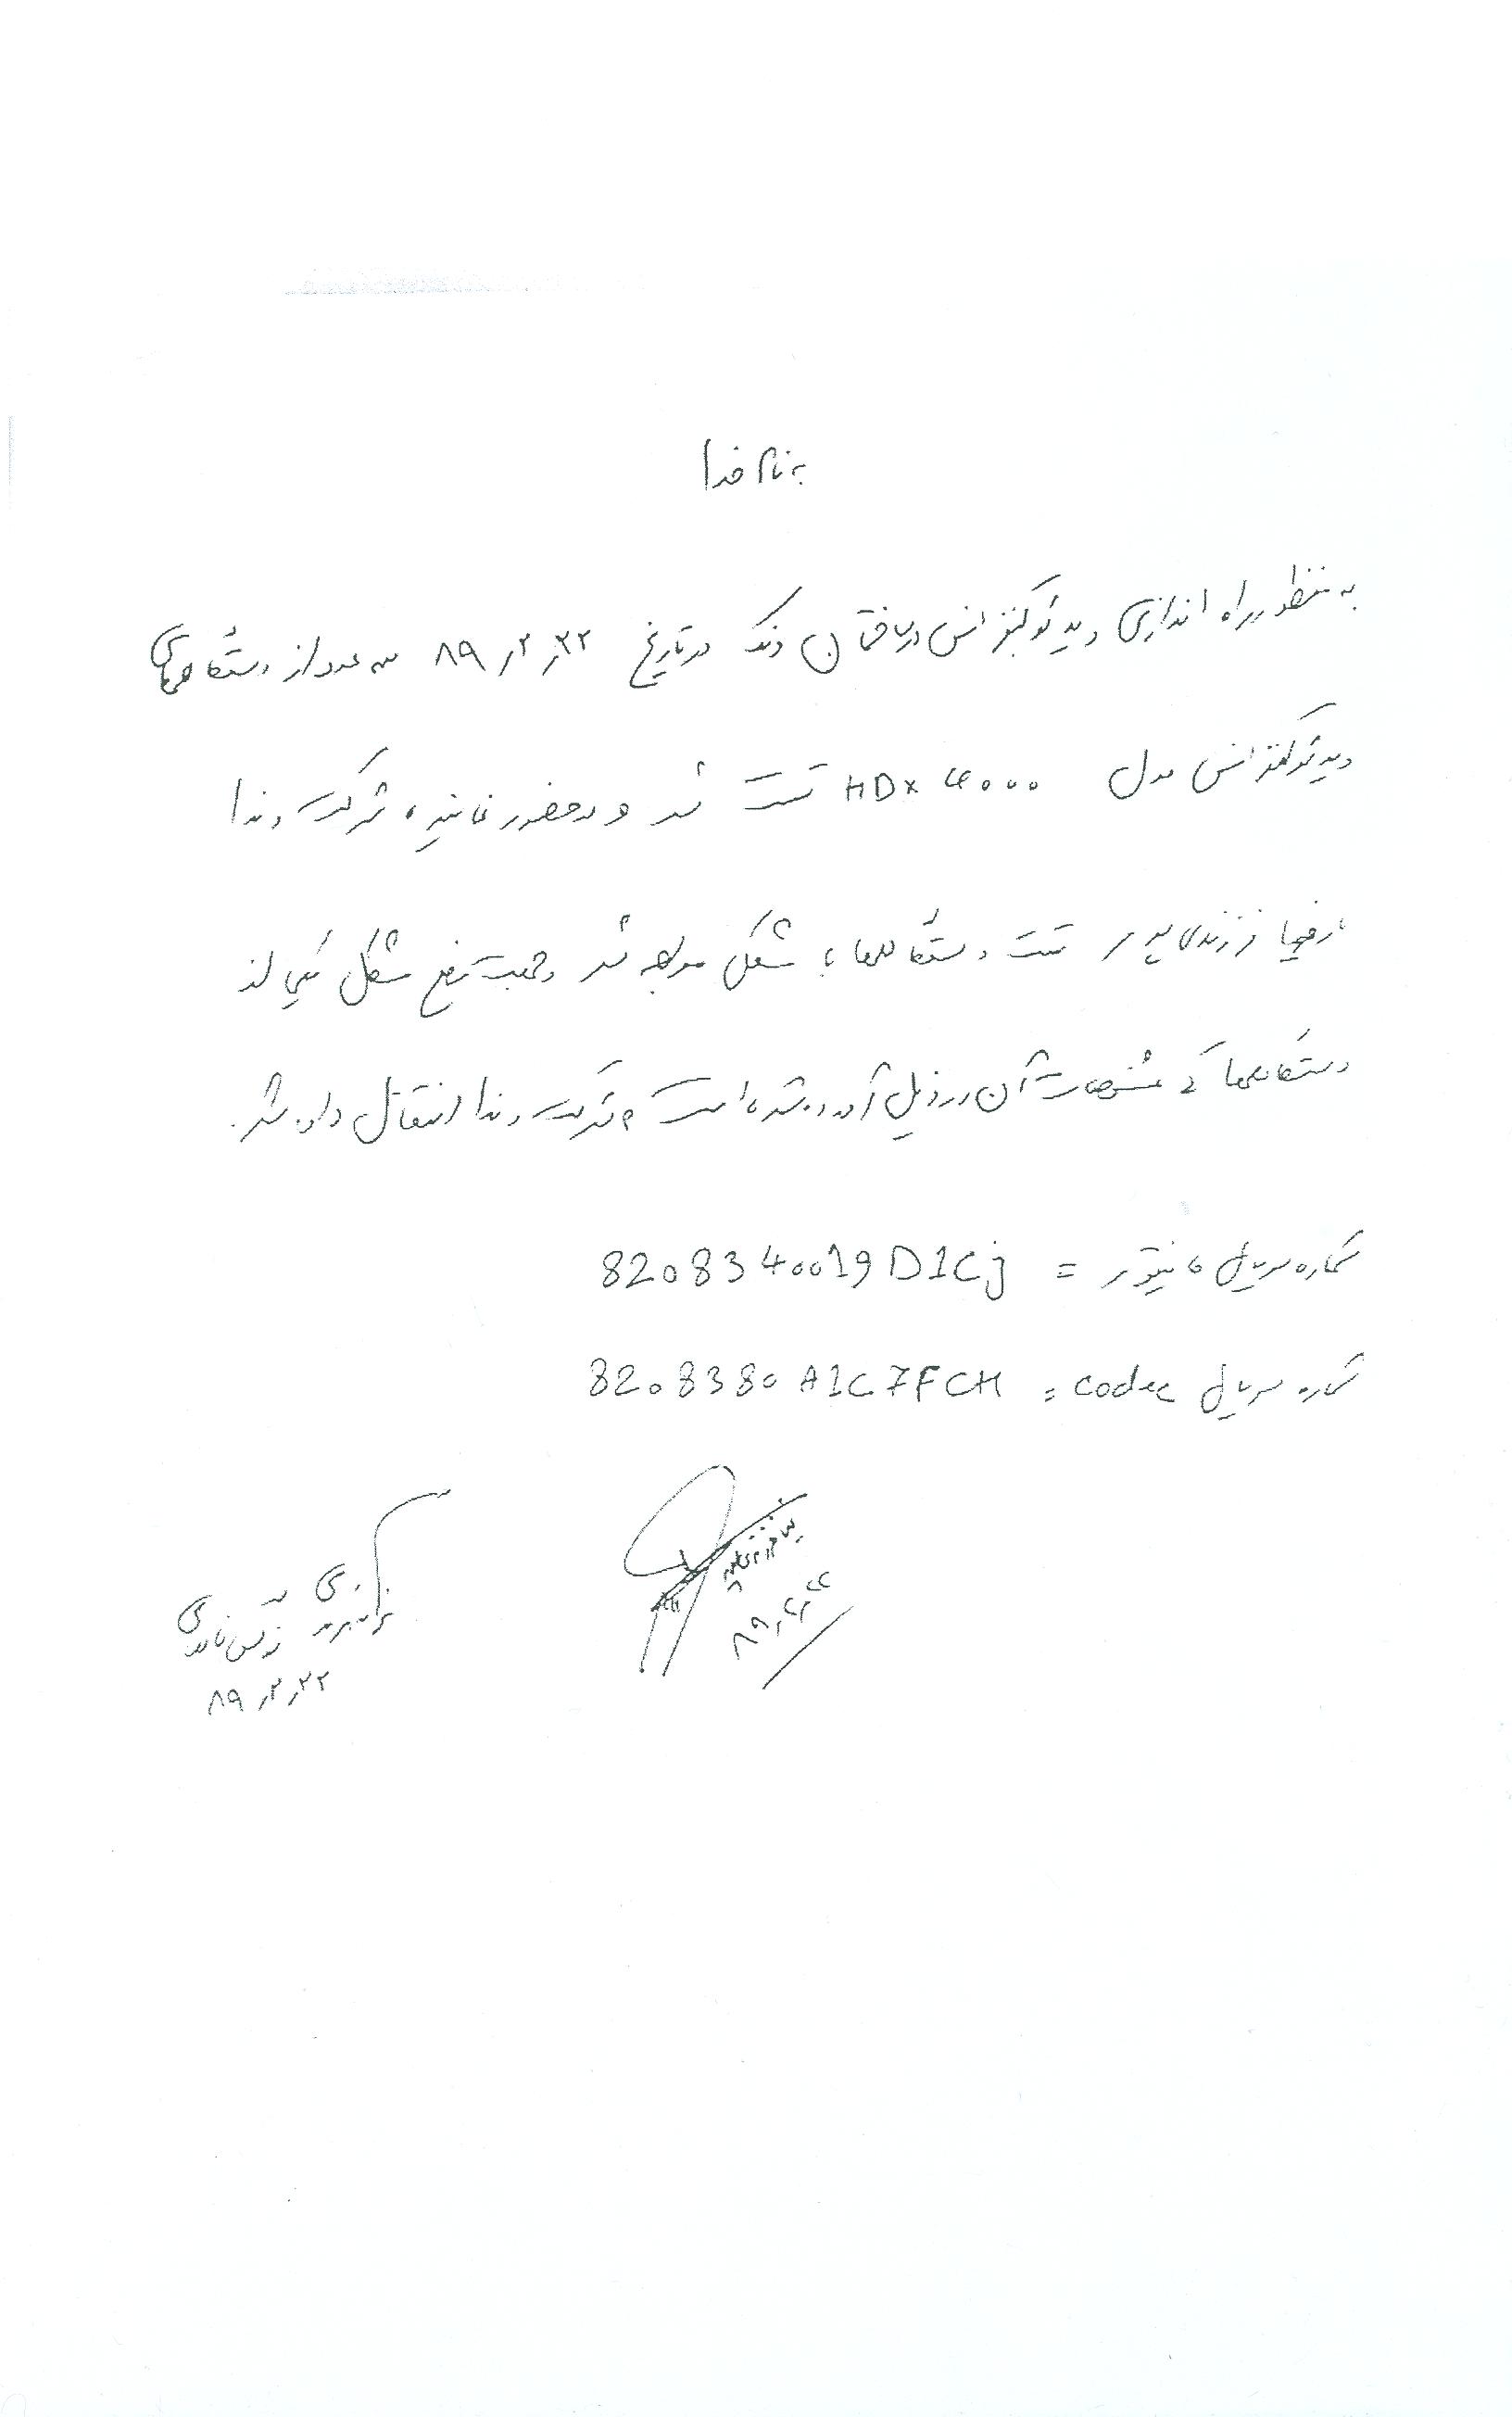 به نام خدا
به منظور راه اندازی ویدئو کنفرانس در ساختمان ونک در تاریخ ۸۹٫۲٫۲۲ سه عدد از دستگاههای
ویدئو کنفرانس مدل HDX ۴۰۰۰ تست شد و در حضور نماینده شرکت وندا
تست دستگاهها با مشکل مواجه شد و جهت رفع مشکل یکی از
دستگاهها که مشخصات آن در ذیل آورده شده است به شرکت وندا انتقال داده شد.
شماره سریال مانیتور = 8208340019D1Cj
شماره سریال codec = 8208380A1C7FCH
۸۹٫۲٫۲۲
۸۹٫۲٫۲۲